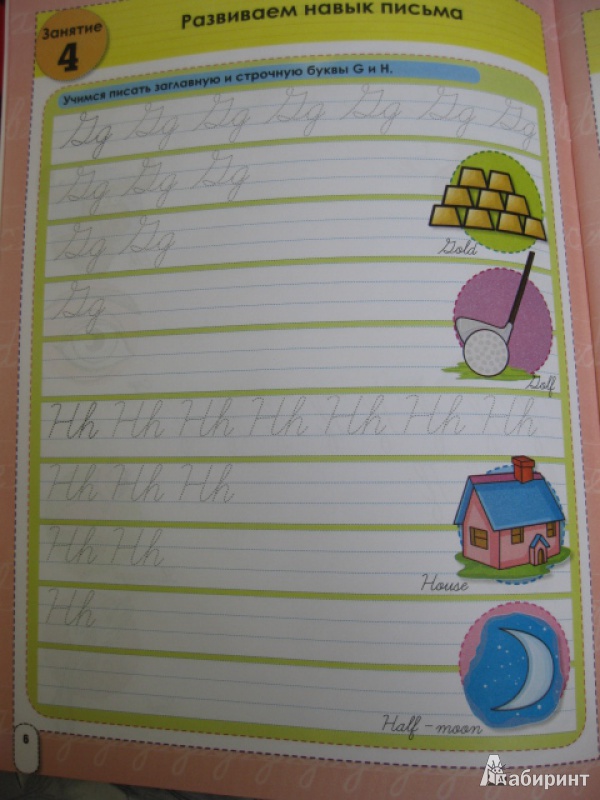 Занятие
4
Развиваем навык письма
Учимся писать заглавную и строчную буквы G и H.
Gg Gg Gg Gg Gg Gg Gg
Gg Gg Gg
Gold
Gg Gg
Gg
Golf
Hh Hh Hh Hh Hh Hh Hh
Hh Hh Hh
Hh Hh
House
Hh
Half-moon
6
Лабиринт